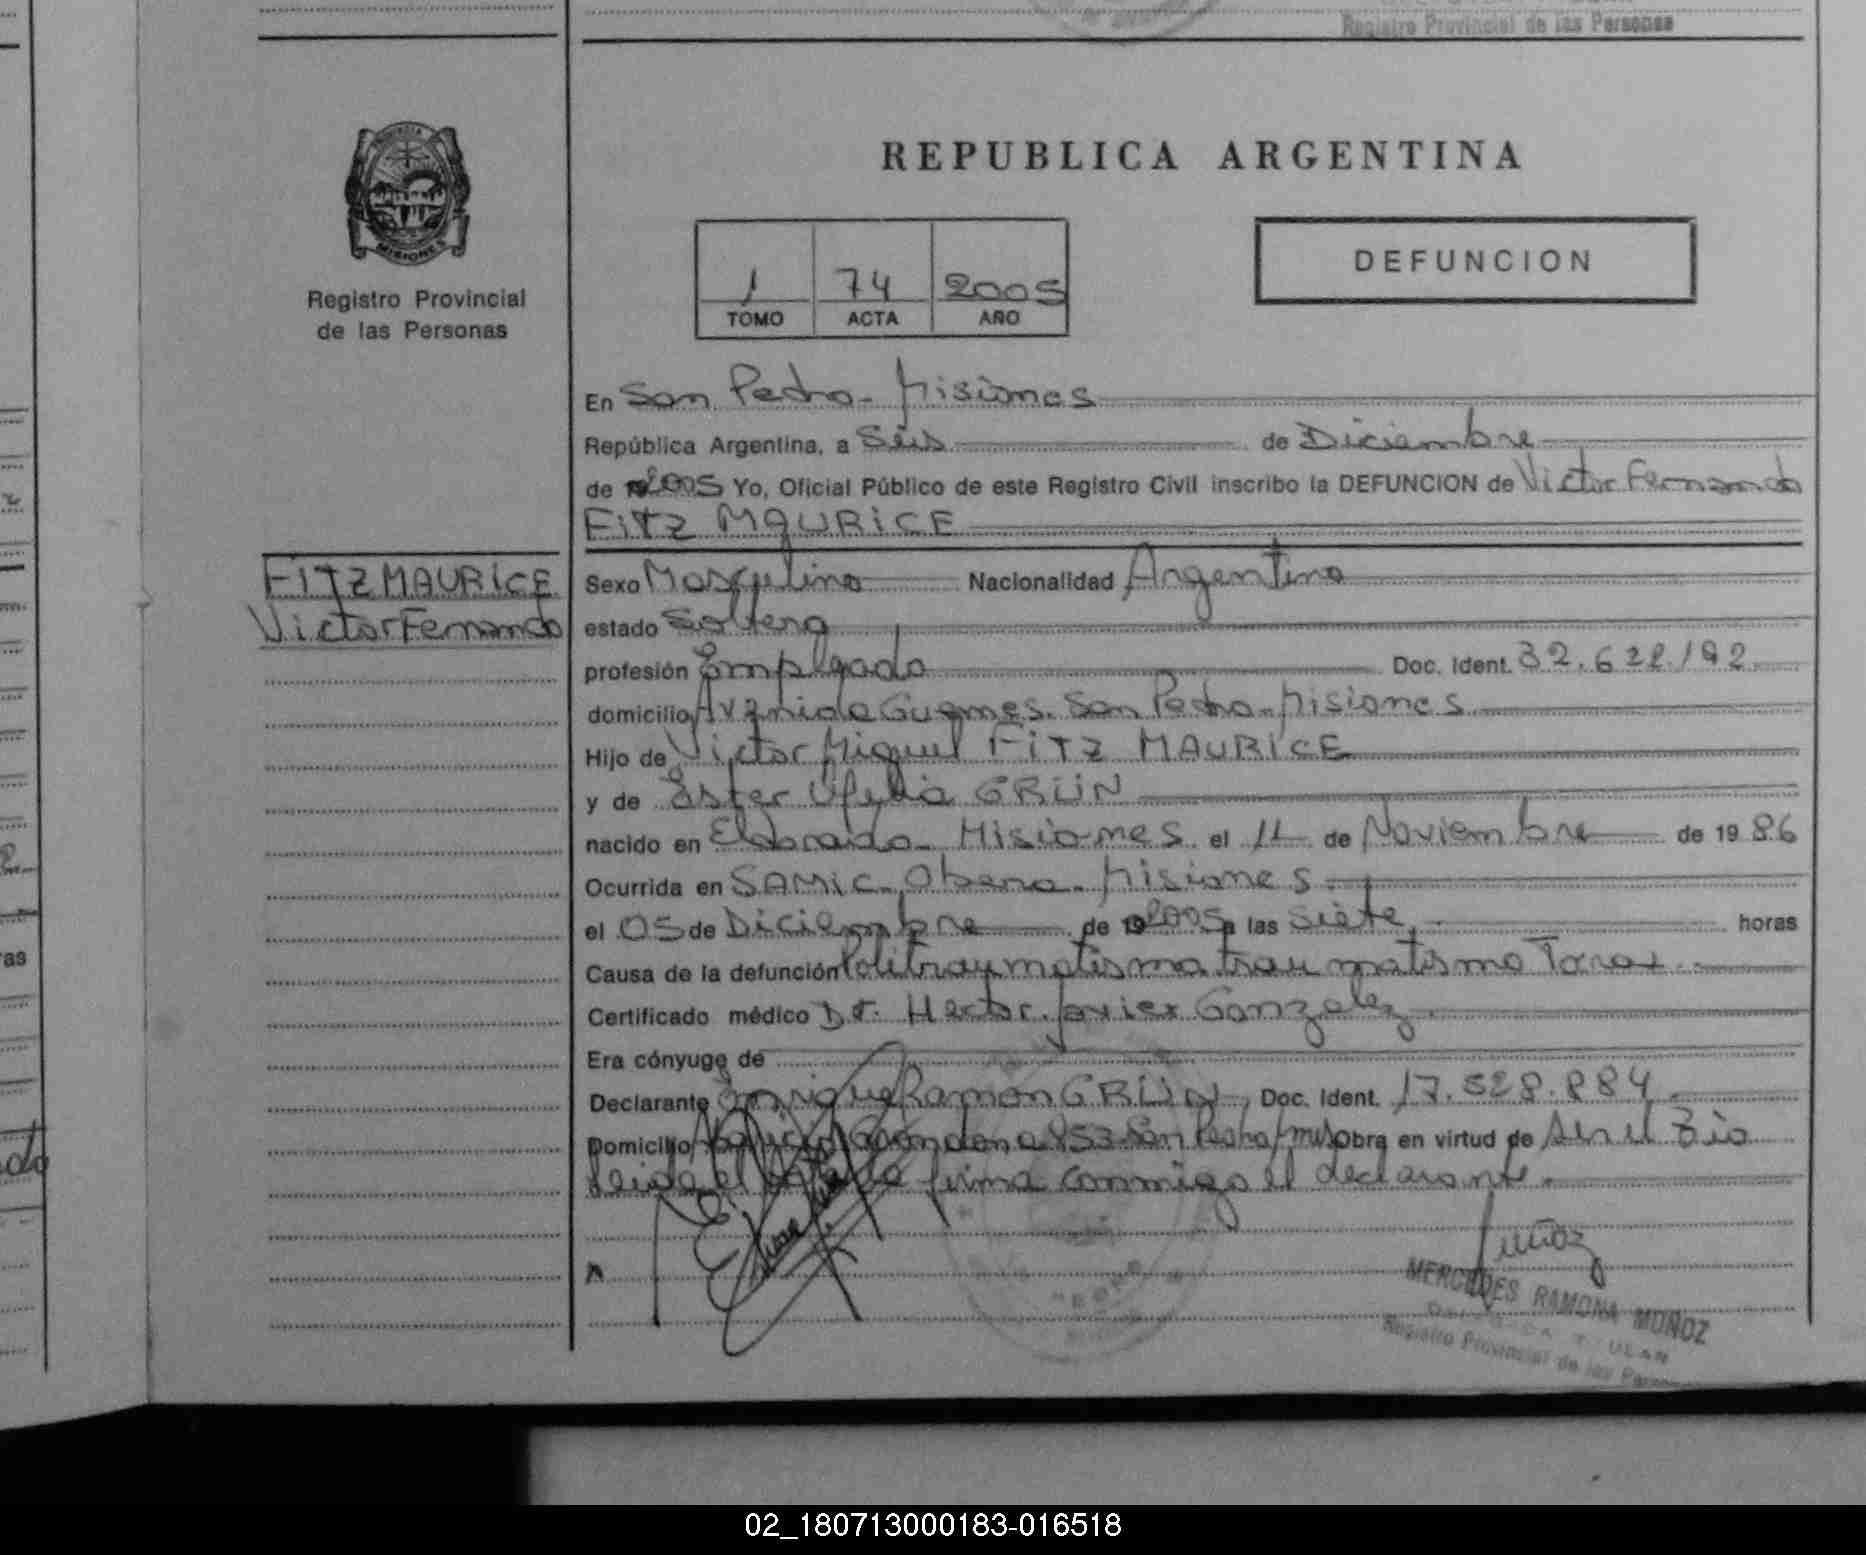 Registro Provincial de las Personas
REPUBLICA ARGENTINA
MISIONES
Registro Provincial
de las Personas
1 74 2005
TOMO ACTA AÑO
DEFUNCION
En San Pedro - Misiones
República Argentina, a Seis de Diciembre
de 2005 Yo, Oficial Público de este Registro Civil inscribo la DEFUNCION de Victor Fernando
FITZ MAURICE
FITZ MAURICE
Victor Fernando
Sexo Masculino Nacionalidad Argentino
estado Soltero
profesión Empleado Doc. Ident. 32.622.192
domicilio Avenida Guemes. San Pedro - Misiones
Hijo de Victor Miguel FITZ MAURICE
y de Ester Ofelia GRÜN
nacido en Eldorado - Misiones el 11 de Noviembre de 1986
Ocurrida en SAMIC - Obera - Misiones
el 05 de Diciembre de 2005 a las siete horas
Causa de la defunción Politraumatismo traumatismo Torax
Certificado médico Dr. Hector Javier Gonzalez
Era cónyuge de
Declarante Enrique Ramon GRÜN Doc. Ident. 17.528.884
Domicilio 853 San Pedro Obra en virtud de ser el Tio
leida el acta la firma conmigo el declarante
Muñoz
MERCEDES RAMONA MUÑOZ
Registro Provincial de las Personas
02_180713000183-016518